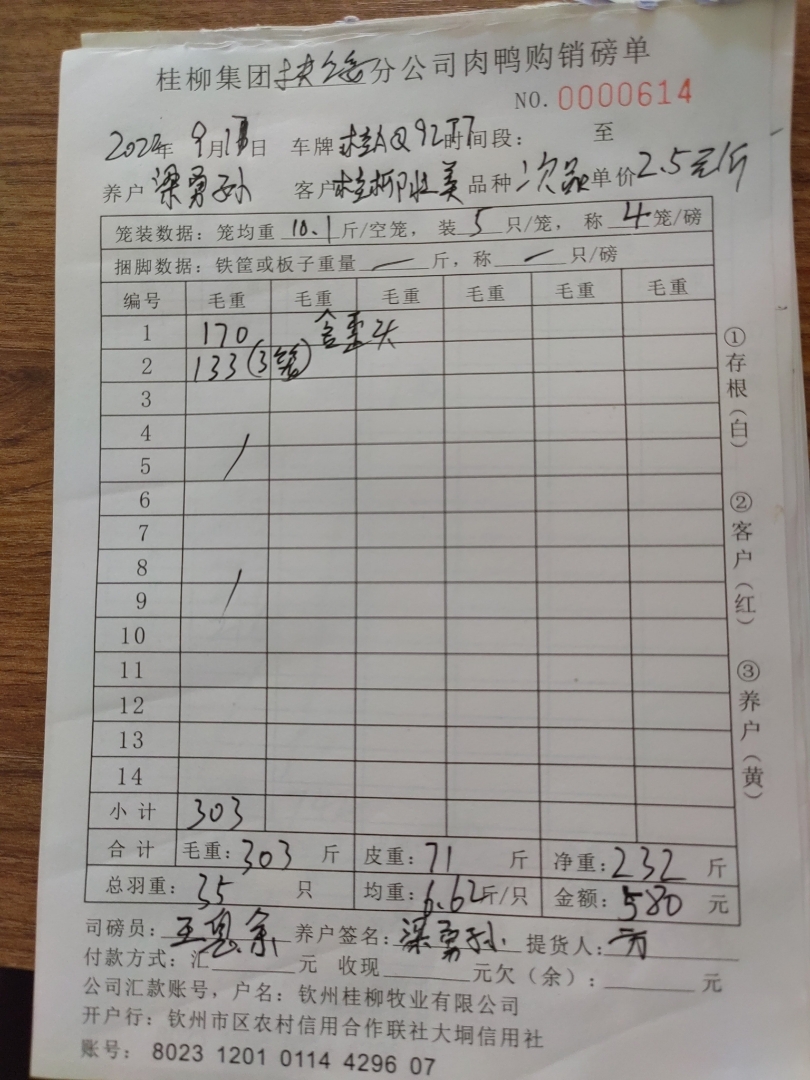 桂柳集团扶绥分公司肉鸭购销磅单
NO. 0000614
2022年 9月17日 车牌 桂AQ9277 时间段： 至
养户 梁勇孙 客户 桂柳旺美 品种 次品 单价 2.5元/斤
笼装数据：笼均重 10.1 斤/空笼， 装 5 只/笼， 称 4 笼/磅
捆脚数据：铁筐或板子重量 — 斤，称 — 只/磅
编号 毛重 毛重 毛重 毛重 毛重 毛重
1 170 含歪头
2 133(3笼)
3
4
5
6
7
8
9
10
11
12
13
14
小计 303
合计 毛重：303 斤 皮重：71 斤 净重：232 斤
总羽重：35 只 均重：6.62斤/只 金额：580 元
司磅员： 养户签名：梁勇孙 提货人：
付款方式：汇 元 收现 元欠（余）： 元
公司汇款账号，户名：钦州桂柳牧业有限公司
开户行：钦州市区农村信用合作联社大垌信用社
账号： 8023 1201 0114 4296 07
①存根（白）
②客户（红）
③养户（黄）